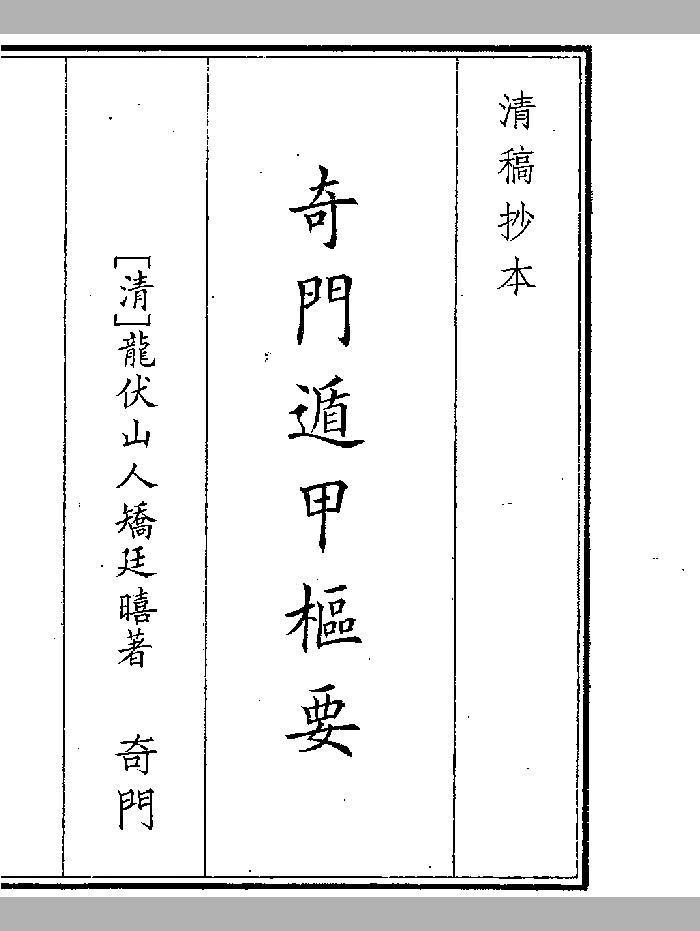 清稿抄本
奇門遁甲樞要
[清]龍伏山人矯廷暿著 奇門